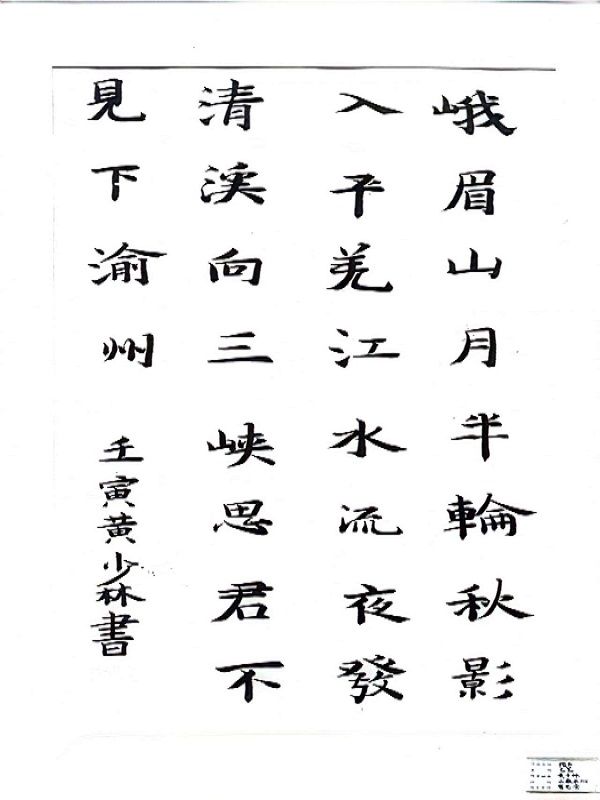 峨眉山月半輪秋影
入平羌江水流夜發
清溪向三峽思君不
見下渝州
壬寅黄少林書